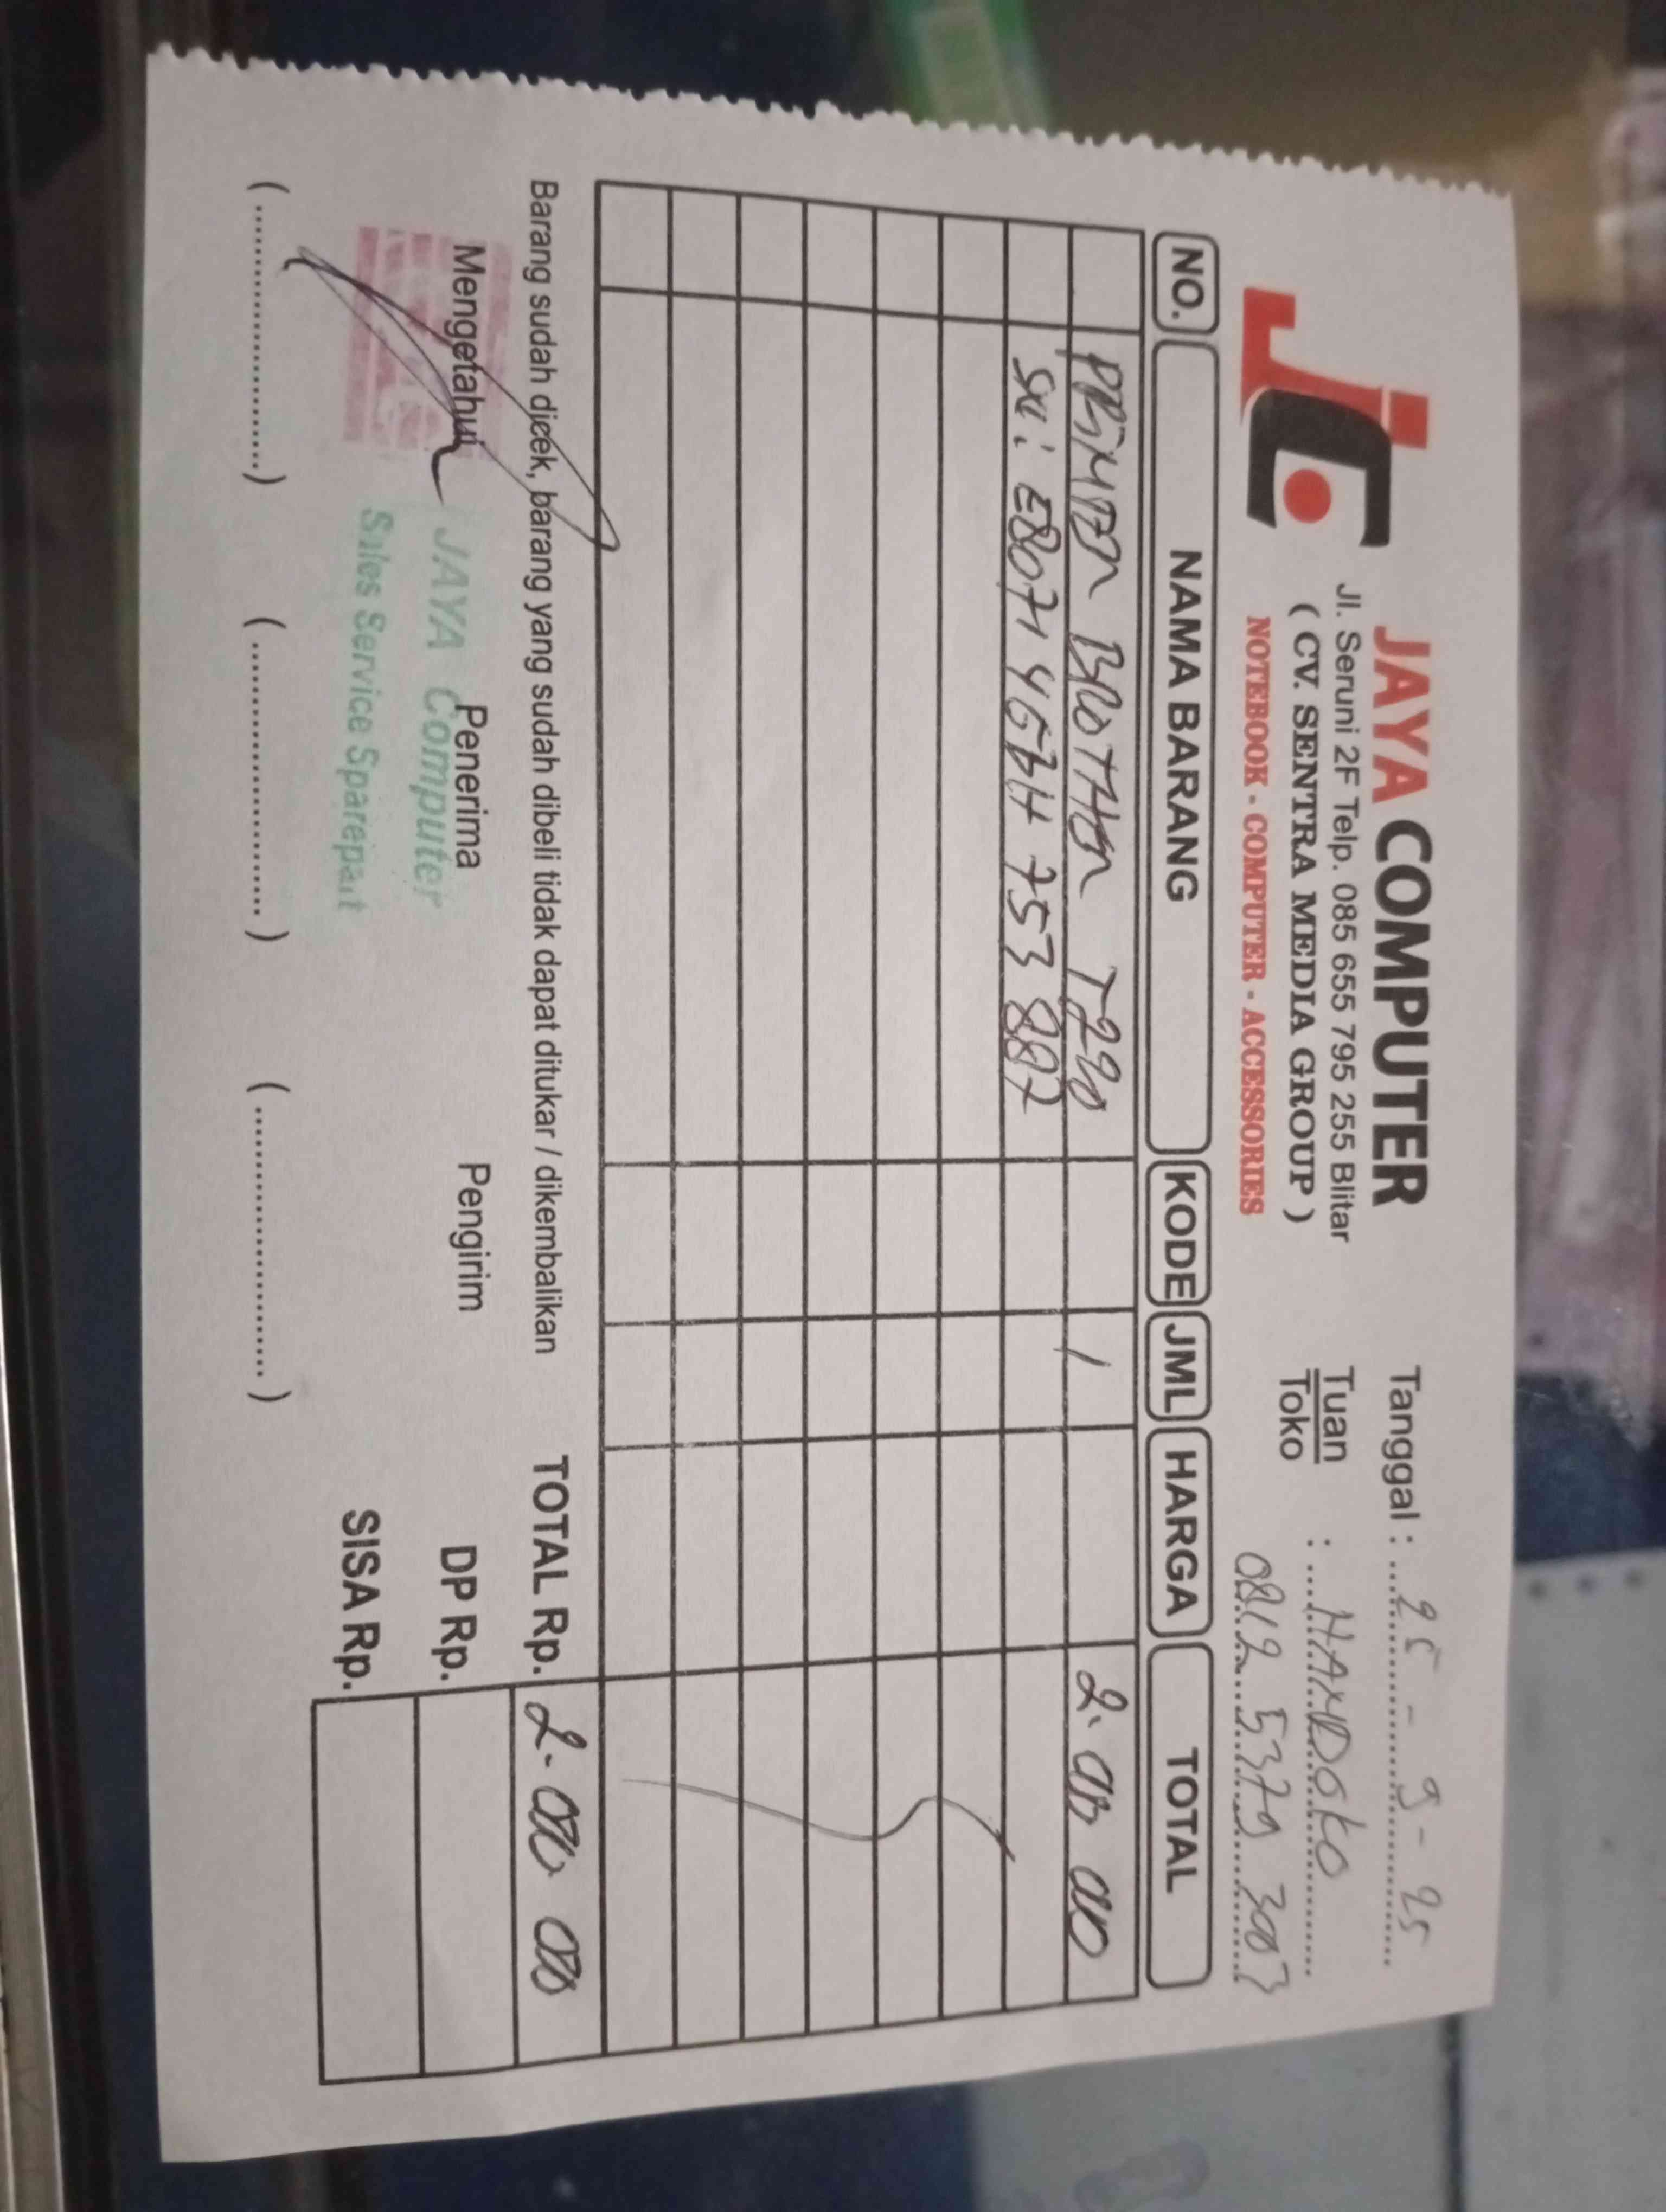 JAYA COMPUTER
Jl. Seruni 2F Telp. 085 655 795 255 Blitar
( CV. SENTRA MEDIA GROUP )
NOTEBOOK - COMPUTER - ACCESSORIES
Tanggal : 25 - 9 - 25
Tuan
Toko : HANDOKO
0812 5379 3003
NO. NAMA BARANG KODE JML HARGA TOTAL
PRINTER BROTHER T220 1 2.000 000
SN: E80714G5H753887
Barang sudah dicek, barang yang sudah dibeli tidak dapat ditukar / dikembalikan
TOTAL Rp. 2.000 000
DP Rp.
SISA Rp.
Mengetahui Penerima Pengirim
JAYA Computer
Sales Service Sparepart
(....................) (....................) (....................)